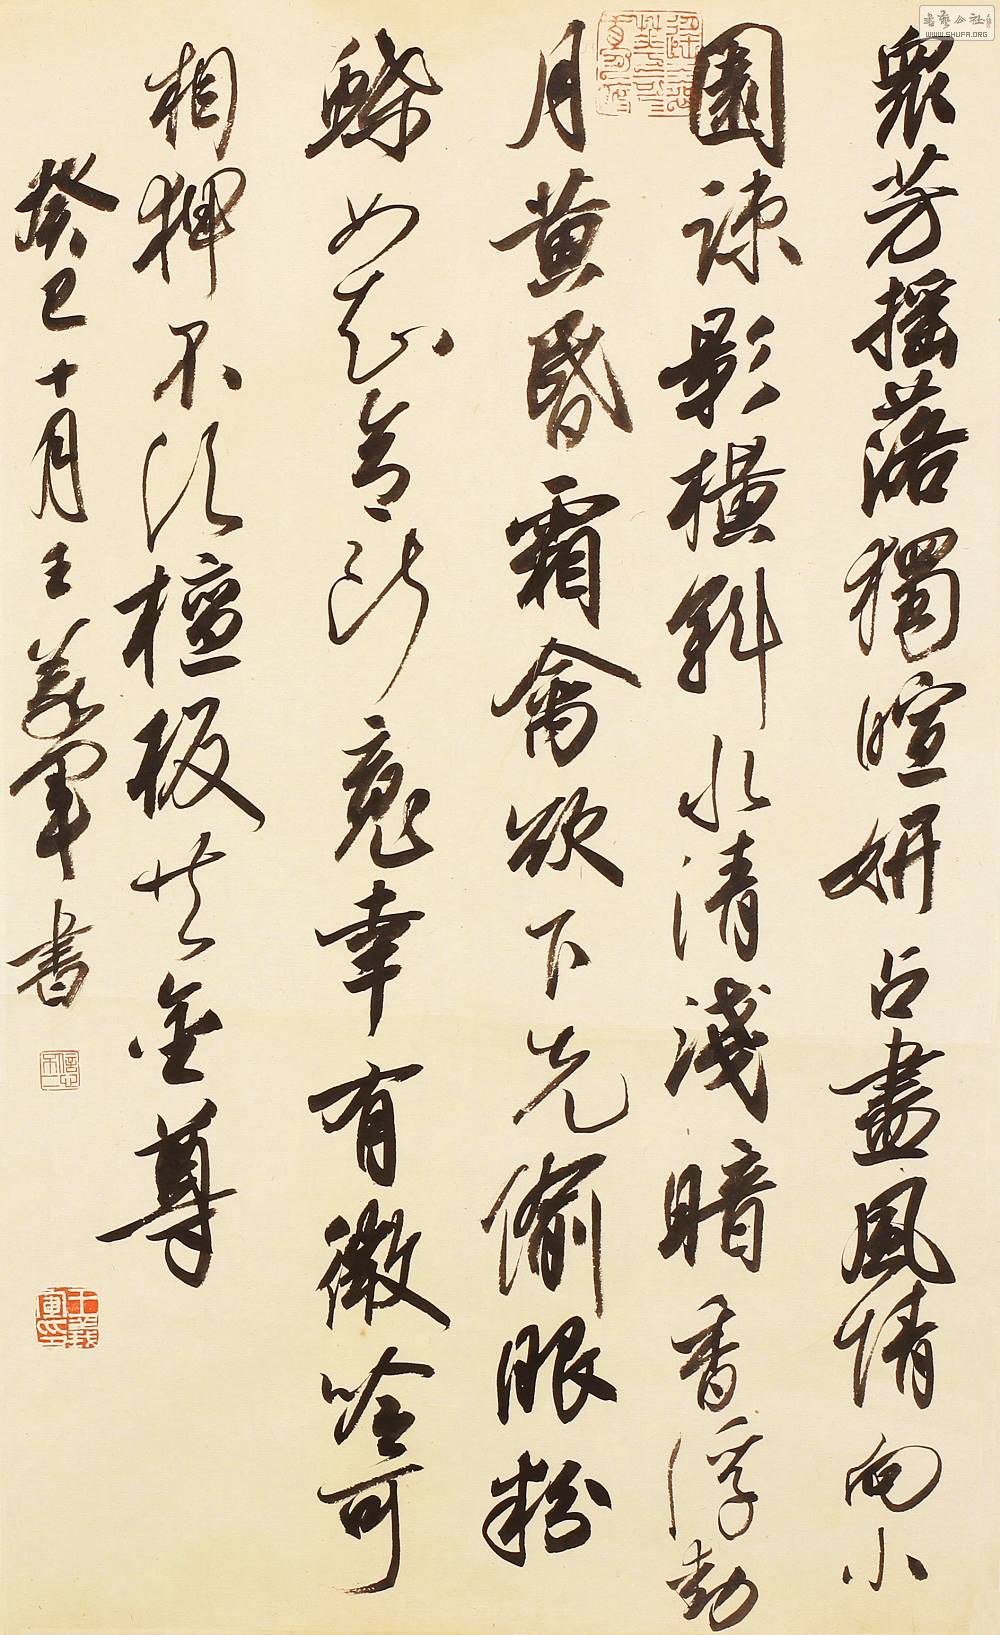 衆芳搖落獨暄妍占盡風情向小
園疎影橫斜水清淺暗香浮動
月黃昏霜禽欲下先偷眼粉
蝶如知合斷魂幸有微吟可
相狎不須檀板共金尊
癸巳十月王義軍書
書藝公社
WWW.SHUFA.ORG